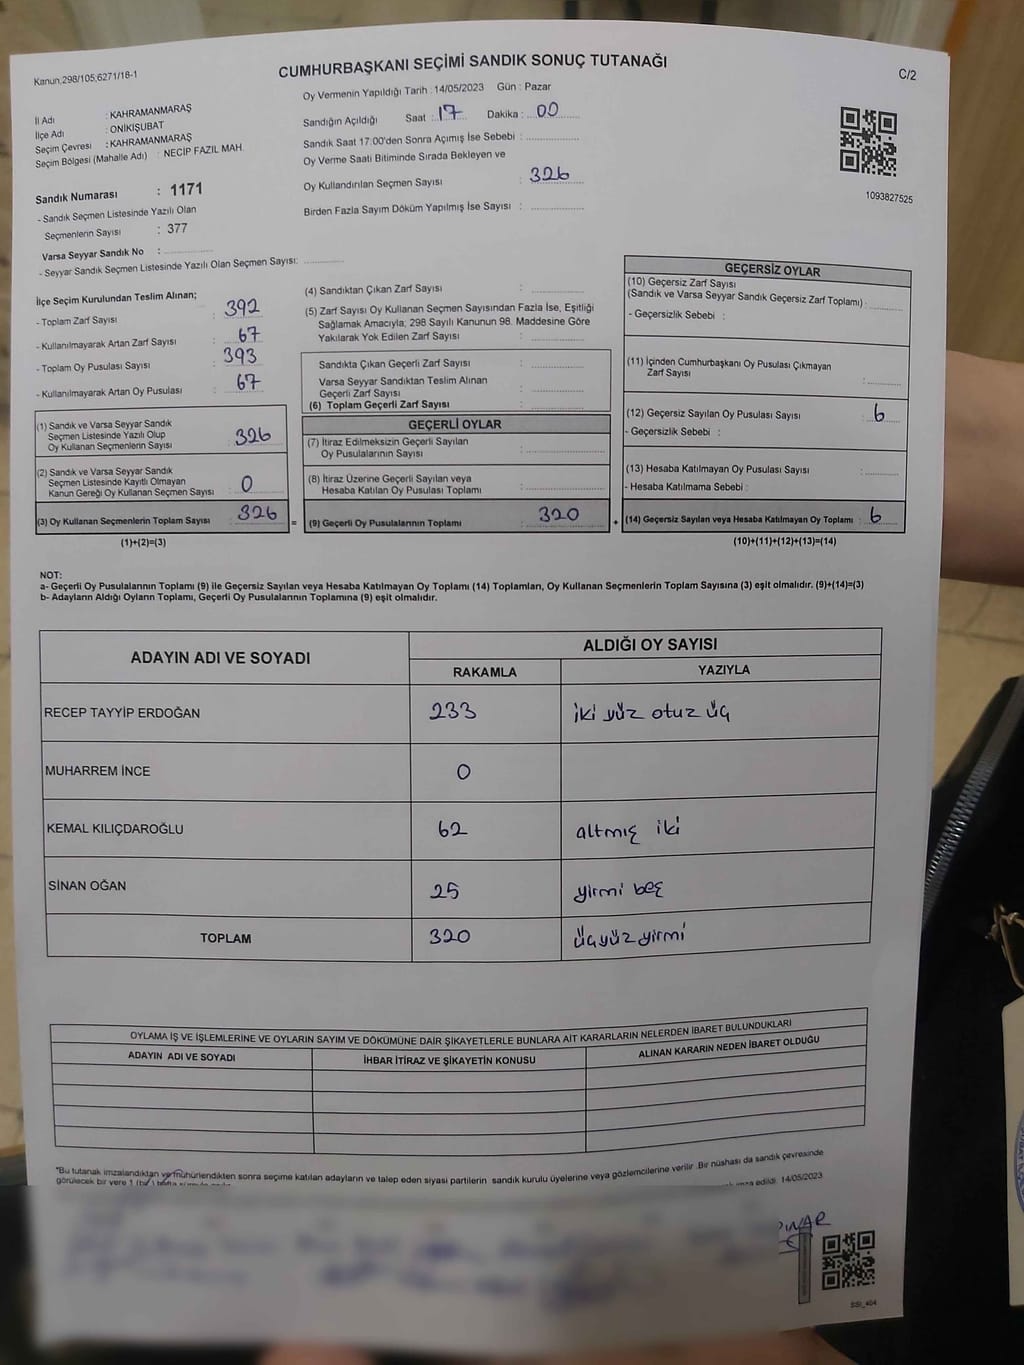 Kanun:298/105;6271/18-1
CUMHURBAŞKANI SEÇİMİ SANDIK SONUÇ TUTANAĞI
C/2
Oy Vermenin Yapıldığı Tarih : 14/05/2023 Gün : Pazar
İl Adı : KAHRAMANMARAŞ
İlçe Adı : ONİKİŞUBAT
Seçim Çevresi : KAHRAMANMARAŞ
Seçim Bölgesi (Mahalle Adı) : NECİP FAZIL MAH.
Sandığın Açıldığı Saat : 17 Dakika : 00
Sandık Saat 17:00'den Sonra Açımış İse Sebebi :
Oy Verme Saati Bitiminde Sırada Bekleyen ve
Oy Kullandırılan Seçmen Sayısı : 326
Birden Fazla Sayım Döküm Yapılmış İse Sayısı :
1093827525
Sandık Numarası : 1171
- Sandık Seçmen Listesinde Yazılı Olan
Seçmenlerin Sayısı : 377
Varsa Seyyar Sandık No :
- Seyyar Sandık Seçmen Listesinde Yazılı Olan Seçmen Sayısı:
İlçe Seçim Kurulundan Teslim Alınan;
- Toplam Zarf Sayısı : 392
- Kullanılmayarak Artan Zarf Sayısı : 67
- Toplam Oy Pusulası Sayısı : 393
- Kullanılmayarak Artan Oy Pusulası : 67
(1) Sandık ve Varsa Seyyar Sandık
Seçmen Listesinde Yazılı Olup
Oy Kullanan Seçmenlerin Sayısı : 326
(2) Sandık ve Varsa Seyyar Sandık
Seçmen Listesinde Kayıtlı Olmayan
Kanun Gereği Oy Kullanan Seçmen Sayısı : 0
(3) Oy Kullanan Seçmenlerin Toplam Sayısı : 326 =
(1)+(2)=(3)
(4) Sandıktan Çıkan Zarf Sayısı :
(5) Zarf Sayısı Oy Kullanan Seçmen Sayısından Fazla İse, Eşitliği
Sağlamak Amacıyla; 298 Sayılı Kanunun 98. Maddesine Göre
Yakılarak Yok Edilen Zarf Sayısı :
Sandıkta Çıkan Geçerli Zarf Sayısı :
Varsa Seyyar Sandıktan Teslim Alınan
Geçerli Zarf Sayısı :
(6) Toplam Geçerli Zarf Sayısı :
GEÇERLİ OYLAR
(7) İtiraz Edilmeksizin Geçerli Sayılan
Oy Pusulalarının Sayısı :
(8) İtiraz Üzerine Geçerli Sayılan veya
Hesaba Katılan Oy Pusulası Toplamı :
(9) Geçerli Oy Pusulalarının Toplamı : 320 +
GEÇERSİZ OYLAR
(10) Geçersiz Zarf Sayısı
(Sandık ve Varsa Seyyar Sandık Geçersiz Zarf Toplamı) :
- Geçersizlik Sebebi :
(11) İçinden Cumhurbaşkanı Oy Pusulası Çıkmayan
Zarf Sayısı :
(12) Geçersiz Sayılan Oy Pusulası Sayısı : 6
- Geçersizlik Sebebi :
(13) Hesaba Katılmayan Oy Pusulası Sayısı :
- Hesaba Katılmama Sebebi :
(14) Geçersiz Sayılan veya Hesaba Katılmayan Oy Toplamı : 6
(10)+(11)+(12)+(13)=(14)
NOT:
a- Geçerli Oy Pusulalarının Toplamı (9) ile Geçersiz Sayılan veya Hesaba Katılmayan Oy Toplamı (14) Toplamları, Oy Kullanan Seçmenlerin Toplam Sayısına (3) eşit olmalıdır. (9)+(14)=(3)
b- Adayların Aldığı Oyların Toplamı, Geçerli Oy Pusulalarının Toplamına (9) eşit olmalıdır.
ADAYIN ADI VE SOYADI ALDIĞI OY SAYISI
RAKAMLA YAZIYLA
RECEP TAYYİP ERDOĞAN 233 iki yüz otuz üç
MUHARREM İNCE 0
KEMAL KILIÇDAROĞLU 62 altmış iki
SİNAN OĞAN 25 yirmi beş
TOPLAM 320 üçyüz yirmi
OYLAMA İŞ VE İŞLEMLERİNE VE OYLARIN SAYIM VE DÖKÜMÜNE DAİR ŞİKAYETLERLE BUNLARA AİT KARARLARIN NELERDEN İBARET BULUNDUKLARI
ADAYIN ADI VE SOYADI İHBAR İTİRAZ VE ŞİKAYETİN KONUSU ALINAN KARARIN NEDEN İBARET OLDUĞU
"Bu tutanak imzalandıktan ve mühürlendikten sonra seçime katılan adayların ve talep eden siyasi partilerin sandık kurulu üyelerine veya gözlemcilerine verilir. Bir nüshası da sandık çevresinde
görülecek bir yere 1 imza edildi. 14/05/2023
SSI_404